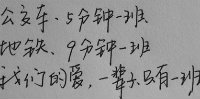 公交车、5分钟一班
地铁、9分钟一班
我们的爱，一辈大只有一班